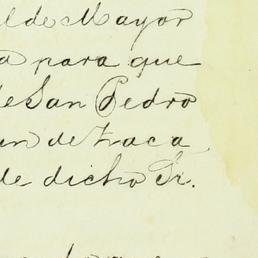 lde Mayor
a para que
de San Pedro
an de traca
de dicho Sr.